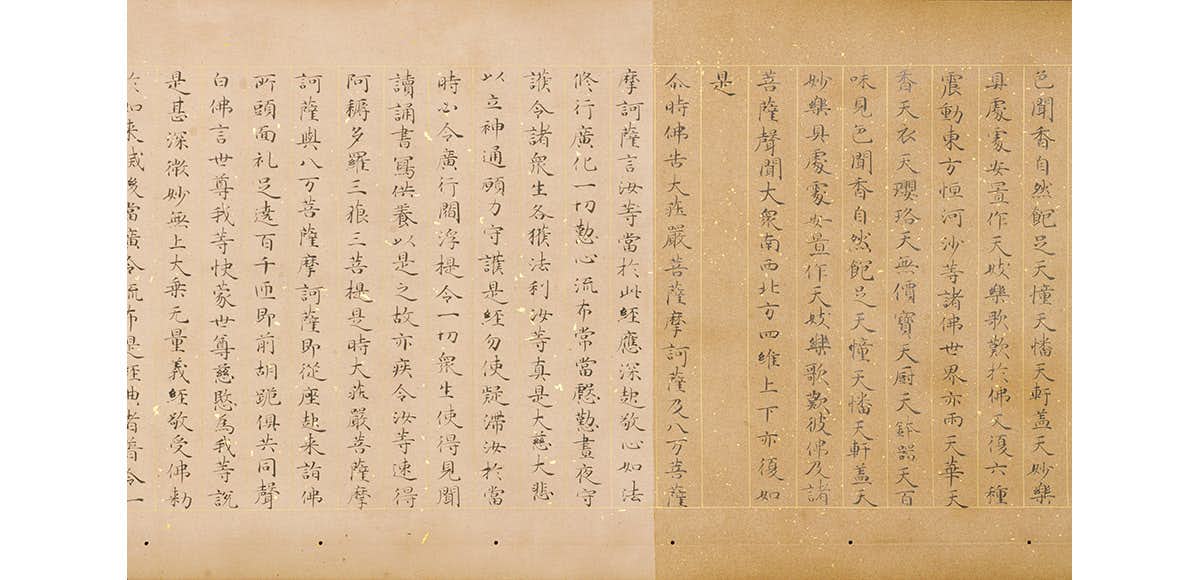 色聞香自然飽足天幢天幡天軒蓋天妙樂
具處處安置作天妓樂歌歎於佛又復六種
震動東方恒河沙等諸佛世界亦雨天華天
香天衣天瓔珞天無價寶天厨天鉢器天百
味見色聞香自然飽足天幢天幡天軒蓋天
妙樂具處處安置作天妓樂歌歎彼佛乃諸
菩薩聲聞大衆南西北方四維上下亦復如
是
尒時佛告大莊嚴菩薩摩訶薩及八万菩薩
摩訶薩言汝等當於此經應深起敬心如法
修行廣化一切懃心流布常當慇懃晝夜守
護令諸衆生各獲法利汝等真是大慈大悲
以立神通願力守護是經勿使疑滯汝於當
時必令廣行閻浮提令一切衆生使得見聞
讀誦書寫供養以是之故亦疾令汝等速得
阿耨多羅三藐三菩提是時大莊嚴菩薩摩
訶薩與八万菩薩摩訶薩即從座起来詣佛
所頭面礼足遶百千匝即前胡跪俱共同聲
白佛言世尊我等快蒙世尊慈愍為我等說
是甚深微妙無上大乗无量義經敬受佛勑
於如来滅後當廣令流布是經典者普令一